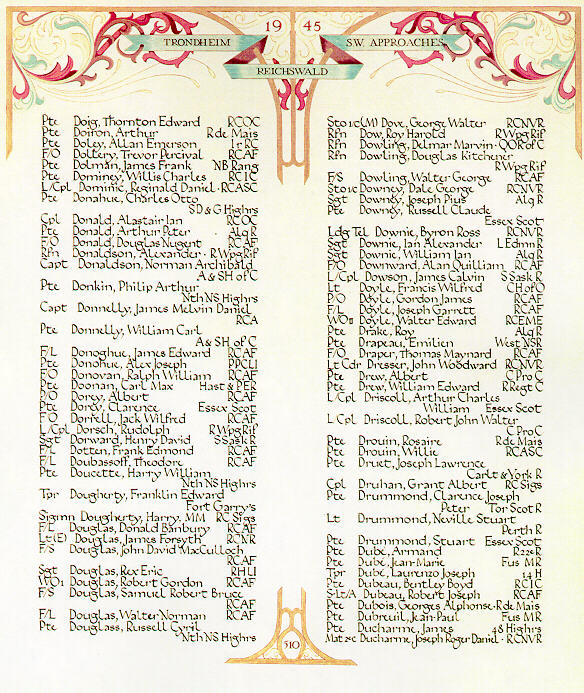 TRONDHEIM
19 45
S.W. APPROACHES
REICHSWALD
Pte Doig, Thornton Edward RCOC
Pte Doiron, Arthur R de Mais
Pte Doley, Allan Emerson Ir RC
F/O Doltery, Trevor Percival RCAF
Pte Dolman, James Frank NB Rang
Pte Dominey, Willis Charles RCIC
L/Cpl Dominic, Reginald Daniel · RCASC
Pte Donahue, Charles Otto
SD & G Highrs
Cpl Donald, Alastair Ian RCOC
Pte Donald, Arthur Peter Alg R
F/O Donald, Douglas Nugent RCAF
Rfn Donaldson, Alexander · R Wpg Rif
Capt Donaldson, Norman Archibald
A & SH of C
Pte Donkin, Philip Arthur
Nth NS Highrs
Capt Donnelly, James Melvin Daniel
RCA
Pte Donnelly, William Carl
A & SH of C
F/L Donoghue, James Edward RCAF
Pte Donohue, Alex Joseph PPCLI
F/O Donovan, Ralph William RCAF
Pte Doonan, Carl Max Hast & PER
P/O Dorey, Albert RCAF
Pte Dorey, Clarence Essex Scot
F/O Dorrell, Jack Wilfred RCAF
L/Cpl Dorsch, Rudolph R Wpg Rif
Sgt Dorward, Henry David S Sask R
F/L Dotten, Frank Edmond RCAF
F/L Doubassoff, Theodore RCAF
Pte Doucette, Harry William
Nth NS Highrs
Tpr Dougherty, Franklin Edward
Fort Garry's
Sigmn Dougherty, Harry, MM RC Sigs
F/L Douglas, Donald Banbury RCAF
Lt(E) Douglas, James Forsyth RCNR
F/S Douglas, John David MacCulloch
RCAF
Sgt Douglas, Rex Eric RHLI
WO1 Douglas, Robert Gordon RCAF
F/S Douglas, Samuel Robert Bruce
RCAF
F/L Douglas, Walter Norman RCAF
Pte Douglass, Russell Cyril
Nth NS Highrs
Sto 1c(M) Dove, George Walter RCNVR
Rfn Dow, Roy Harold R Wpg Rif
Rfn Dowling, Delmar Marvin · QOR of C
Rfn Dowling, Douglas Kitchener
R Wpg Rif
F/S Dowling, Walter George RCAF
Sto 1c Downey, Dale George RCNVR
Sgt Downey, Joseph Pius Alg R
Pte Downey, Russell Claude
Essex Scot
Ldg Tel Downie, Byron Ross RCNVR
Sgt Downie, Ian Alexander L Edmn R
Sgt Downie, William Ian Alg R
F/O Downward, Alan Quilliam RCAF
L/Cpl Dowson, James Calvin S Sask R
Lt Doyle, Francis Wilfred CH of O
P/O Doyle, Gordon James RCAF
F/L Doyle, Joseph Garrett RCAF
WO II Doyle, Walter Edward RCEME
Pte Drake, Roy Alg R
Pte Drapeau, Emilien West NSR
F/O Draper, Thomas Maynard RCAF
Lt Cdr Dresser, John Woodward RCNVR
Pte Drew, Albert C Pro C
Pte Drew, William Edward R Regt C
L/Cpl Driscoll, Arthur Charles
William Essex Scot
L/Cpl Driscoll, Robert John Walter
C Pro C
Pte Drouin, Rosaire R de Mais
Pte Drouin, Willie RCASC
Pte Druet, Joseph Lawrence
Carlt & York R
Cpl Druhan, Grant Albert RC Sigs
Pte Drummond, Clarence Joseph
Peter Tor Scot R
Lt Drummond, Neville Stuart
Perth R
Pte Drummond, Stuart Essex Scot
Pte Dubé, Armand R22e R
Pte Dubé, Jean-Marie Fus MR
Tpr Dubé, Laurenzo Joseph 14 H
Pte Dubeau, Bentley Boyd RCIC
S-Lt/A Dubeau, Robert Joseph RCAF
Pte Dubois, Georges Alphonse · R de Mais
Pte Dubreuil, Jean-Paul Fus MR
Pte Ducharme, James 48 Highrs
Mat 2e Ducharme, Joseph Roger Daniel · RCNVR
510